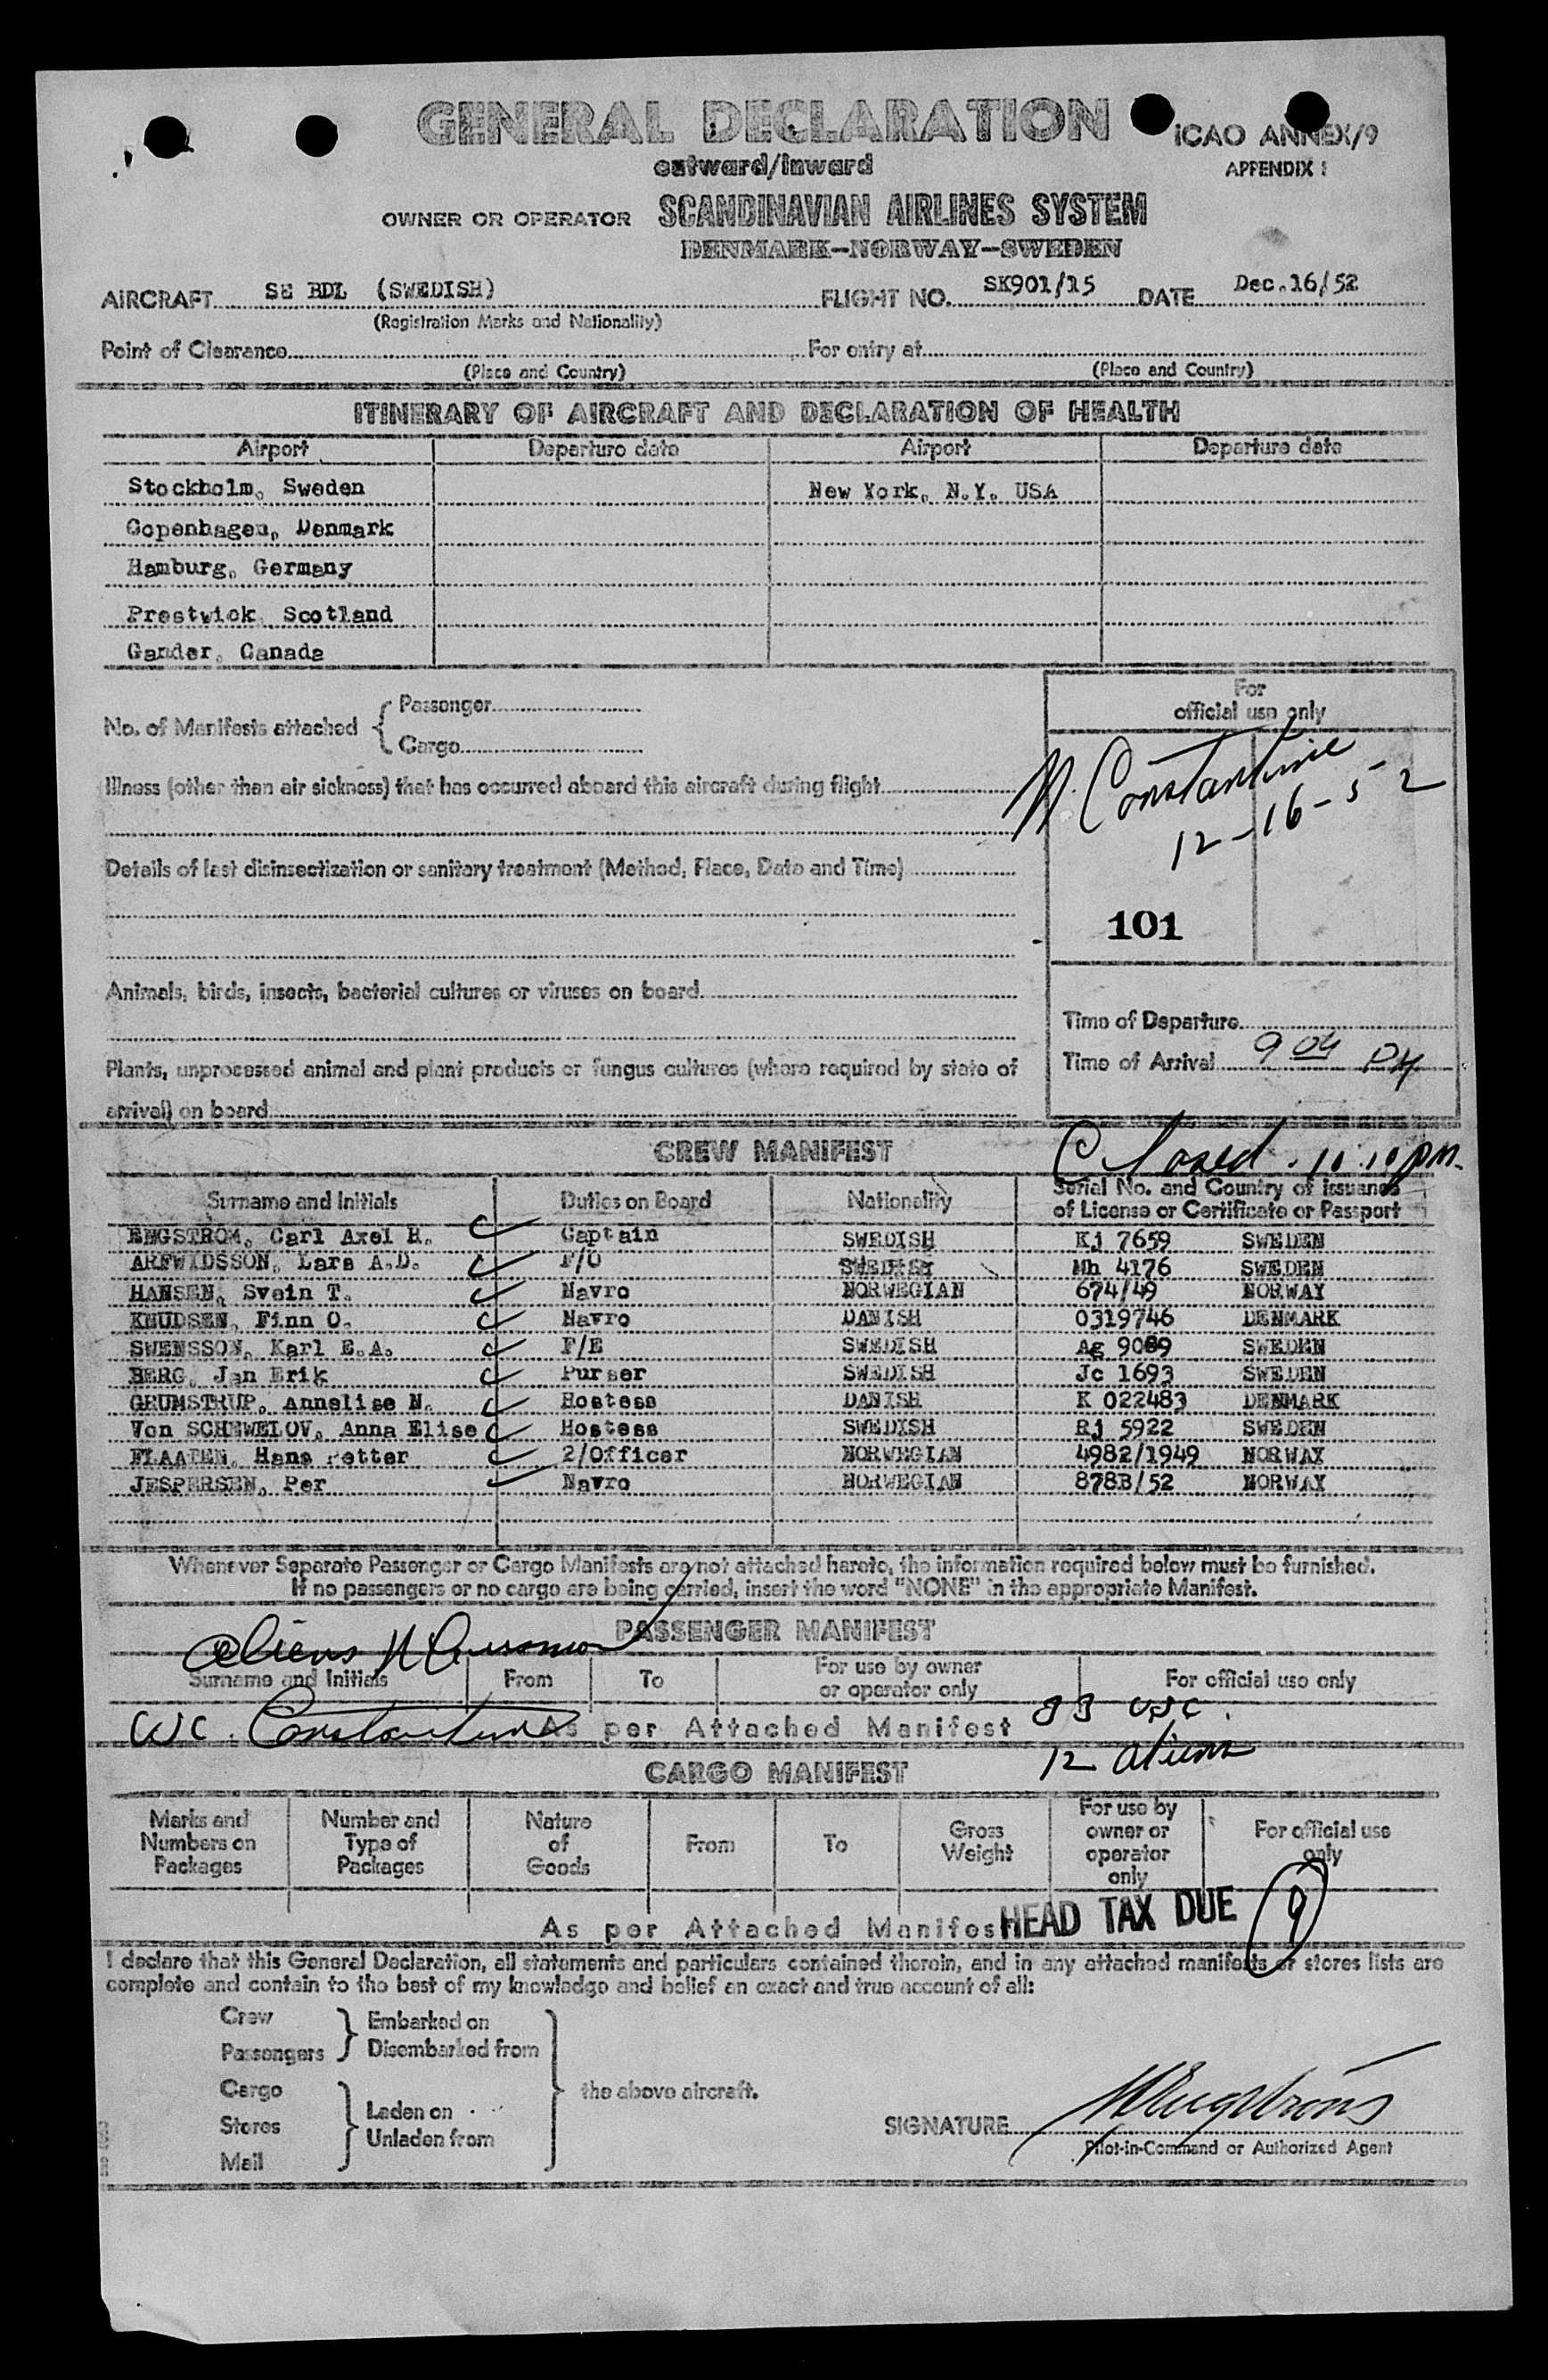 GENERAL DECLARATION
ICAO ANNEX/9
outward/inward
APPENDIX 1
OWNER OR OPERATOR SCANDINAVIAN AIRLINES SYSTEM
DENMARK—NORWAY—SWEDEN
AIRCRAFT SE BDL (SWEDISH) FLIGHT NO. SK901/15 DATE Dec.16/52
(Registration Marks and Nationality)
Point of Clearance For entry at
(Place and Country) (Place and Country)
ITINERARY OF AIRCRAFT AND DECLARATION OF HEALTH
Airport Departure date Airport Departure date
Stockholm, Sweden New York, N.Y. USA
Copenhagen, Denmark
Hamburg, Germany
Prestwick, Scotland
Gander, Canada
For
official use only
No. of Manifests attached { Passenger
Cargo
N. Constantine
12-16-52
Illness (other than air sickness) that has occurred aboard this aircraft during flight
Details of last disinsectization or sanitary treatment (Method, Place, Date and Time)
101
Animals, birds, insects, bacterial cultures or viruses on board
Time of Departure
Time of Arrival 9 04 PM
Plants, unprocessed animal and plant products or fungus cultures (where required by state of
arrival) on board
CREW MANIFEST
Closed. 10.10 pm.
Surname and Initials Duties on Board Nationality Serial No. and Country of issuance
of License or Certificate or Passport
ENGSTROM, Carl Axel H. Captain SWEDISH Kj 7659 SWEDEN
ARFWIDSSON, Lars A.D. F/O SWEDISH Mh 4176 SWEDEN
HANSEN, Svein T. Navro NORWEGIAN 674/49 NORWAY
KNUDSEN, Finn O. Navro DANISH 0319746 DENMARK
SWENSSON, Karl E.A. F/E SWEDISH Ag 9089 SWEDEN
BERG, Jan Erik Purser SWEDISH Jc 1693 SWEDEN
GRUMSTRUP, Annelise N. Hostess DANISH K 022483 DENMARK
Von SCHEWELOV, Anna Elise Hostess SWEDISH Rj 5922 SWEDEN
FLAATEN, Hans Petter 2/Officer NORWEGIAN 4982/1949 NORWAY
JESPERSEN, Per Navro NORWEGIAN 878B/52 NORWAY
Whenever Separate Passenger or Cargo Manifests are not attached hereto, the information required below must be furnished.
If no passengers or no cargo are being carried, insert the word "NONE" in the appropriate Manifest.
PASSENGER MANIFEST
Aliens
Surname and Initials From To For use by owner
or operator only For official use only
Constantine As per Attached Manifest 33 USC.
12 aliens
CARGO MANIFEST
Marks and
Numbers on
Packages
Number and
Type of
Packages
Nature
of
Goods
From
To
Gross
Weight
For use by
owner or
operator
only
For official use
only
As per Attached Manifest HEAD TAX DUE 9
I declare that this General Declaration, all statements and particulars contained therein, and in any attached manifests or stores lists are
complete and contain to the best of my knowledge and belief an exact and true account of all:
Crew
Passengers } Embarked on
Disembarked from
Cargo
Stores
Mail } Laden on
Unladen from
the above aircraft.
SIGNATURE
Pilot-in-Command or Authorized Agent